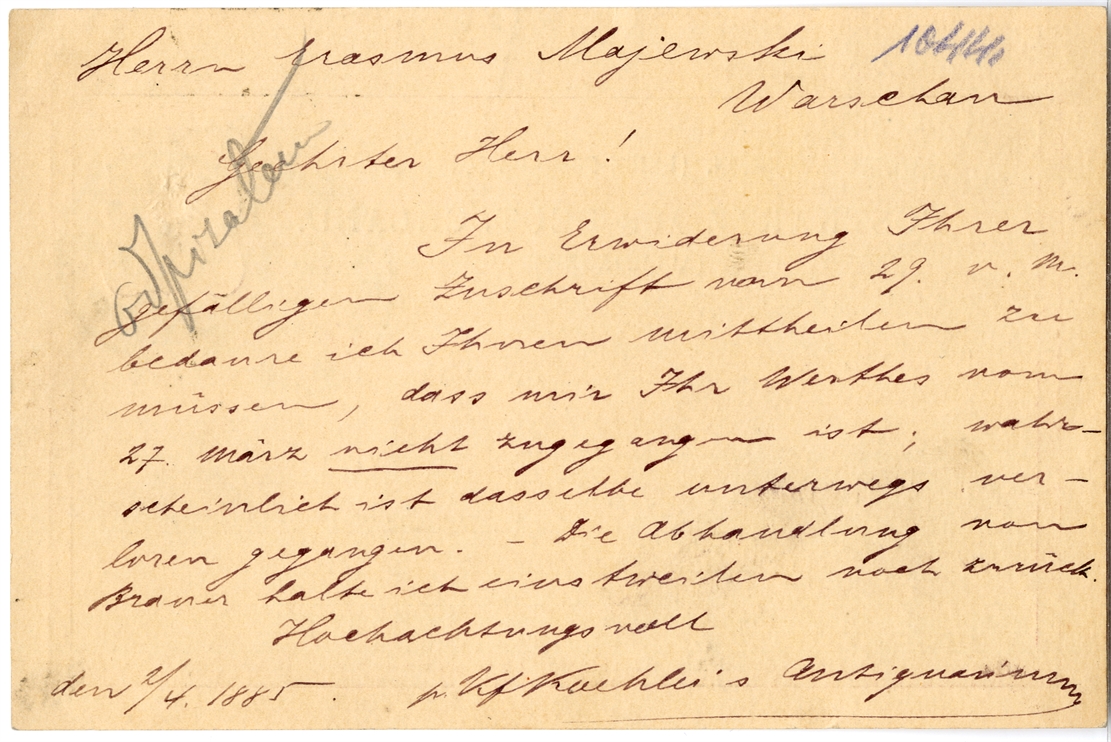 Herrn Erasmus Majewski
Warschau
Geehrter Herr!
In Erwiderung Ihrer
gefälligen Zuschrift vom 29. v. M.
bedaure ich Ihnen mittheilen zu
müssen, dass mir Ihr Werthes vom
27. März nicht zugegangen ist; wahr-
scheinlich ist dasselbe unterwegs ver-
loren gegangen. – Die Abhandlung von
Brauer halte ich einstweilen noch zurück.
Hochachtungsvoll
den 2/4. 1885. p. Koehler's Antiquarium